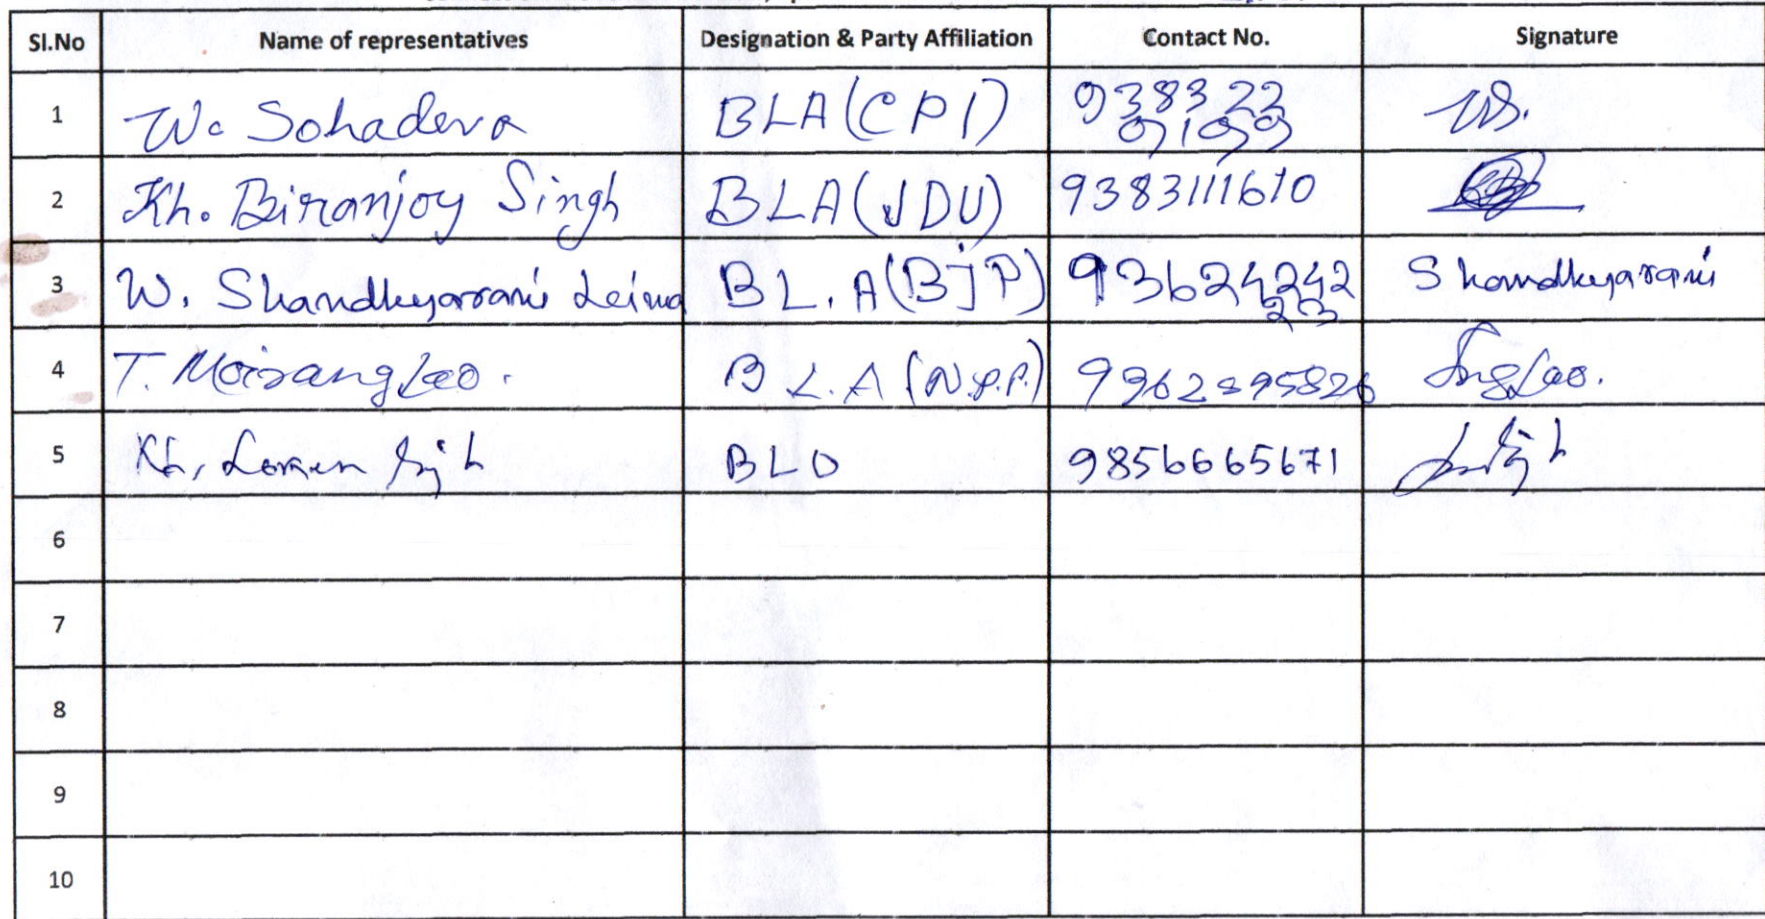 Sl.No Name of representatives Designation & Party Affiliation Contact No. Signature
1 W. Sohadeva BLA (CPI) 938322
9199
2 Kh. Biranjoy Singh BLA (JDU) 9383111610
3 W. Shandhyarani Leima B L . A (BJP) 93624242 Shandhyarani
23
4 T. Moirangleo. B L . A (N.P.P.)
5 Kh. Loren Singh BLO 9856665671
6
7
8
9
10